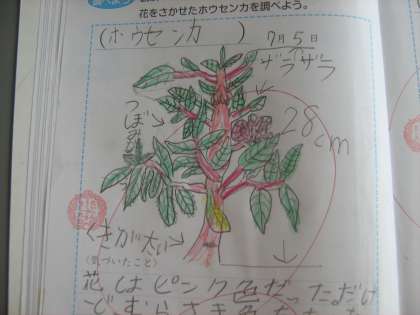 花をさかせたホウセンカを調べよう。
(ホウセンカ ) 7月5日
ザラザラ
つぼみ
28cm
くきが太い
(気づいたこと)
花はピンク色だっただけ
どむらさき色